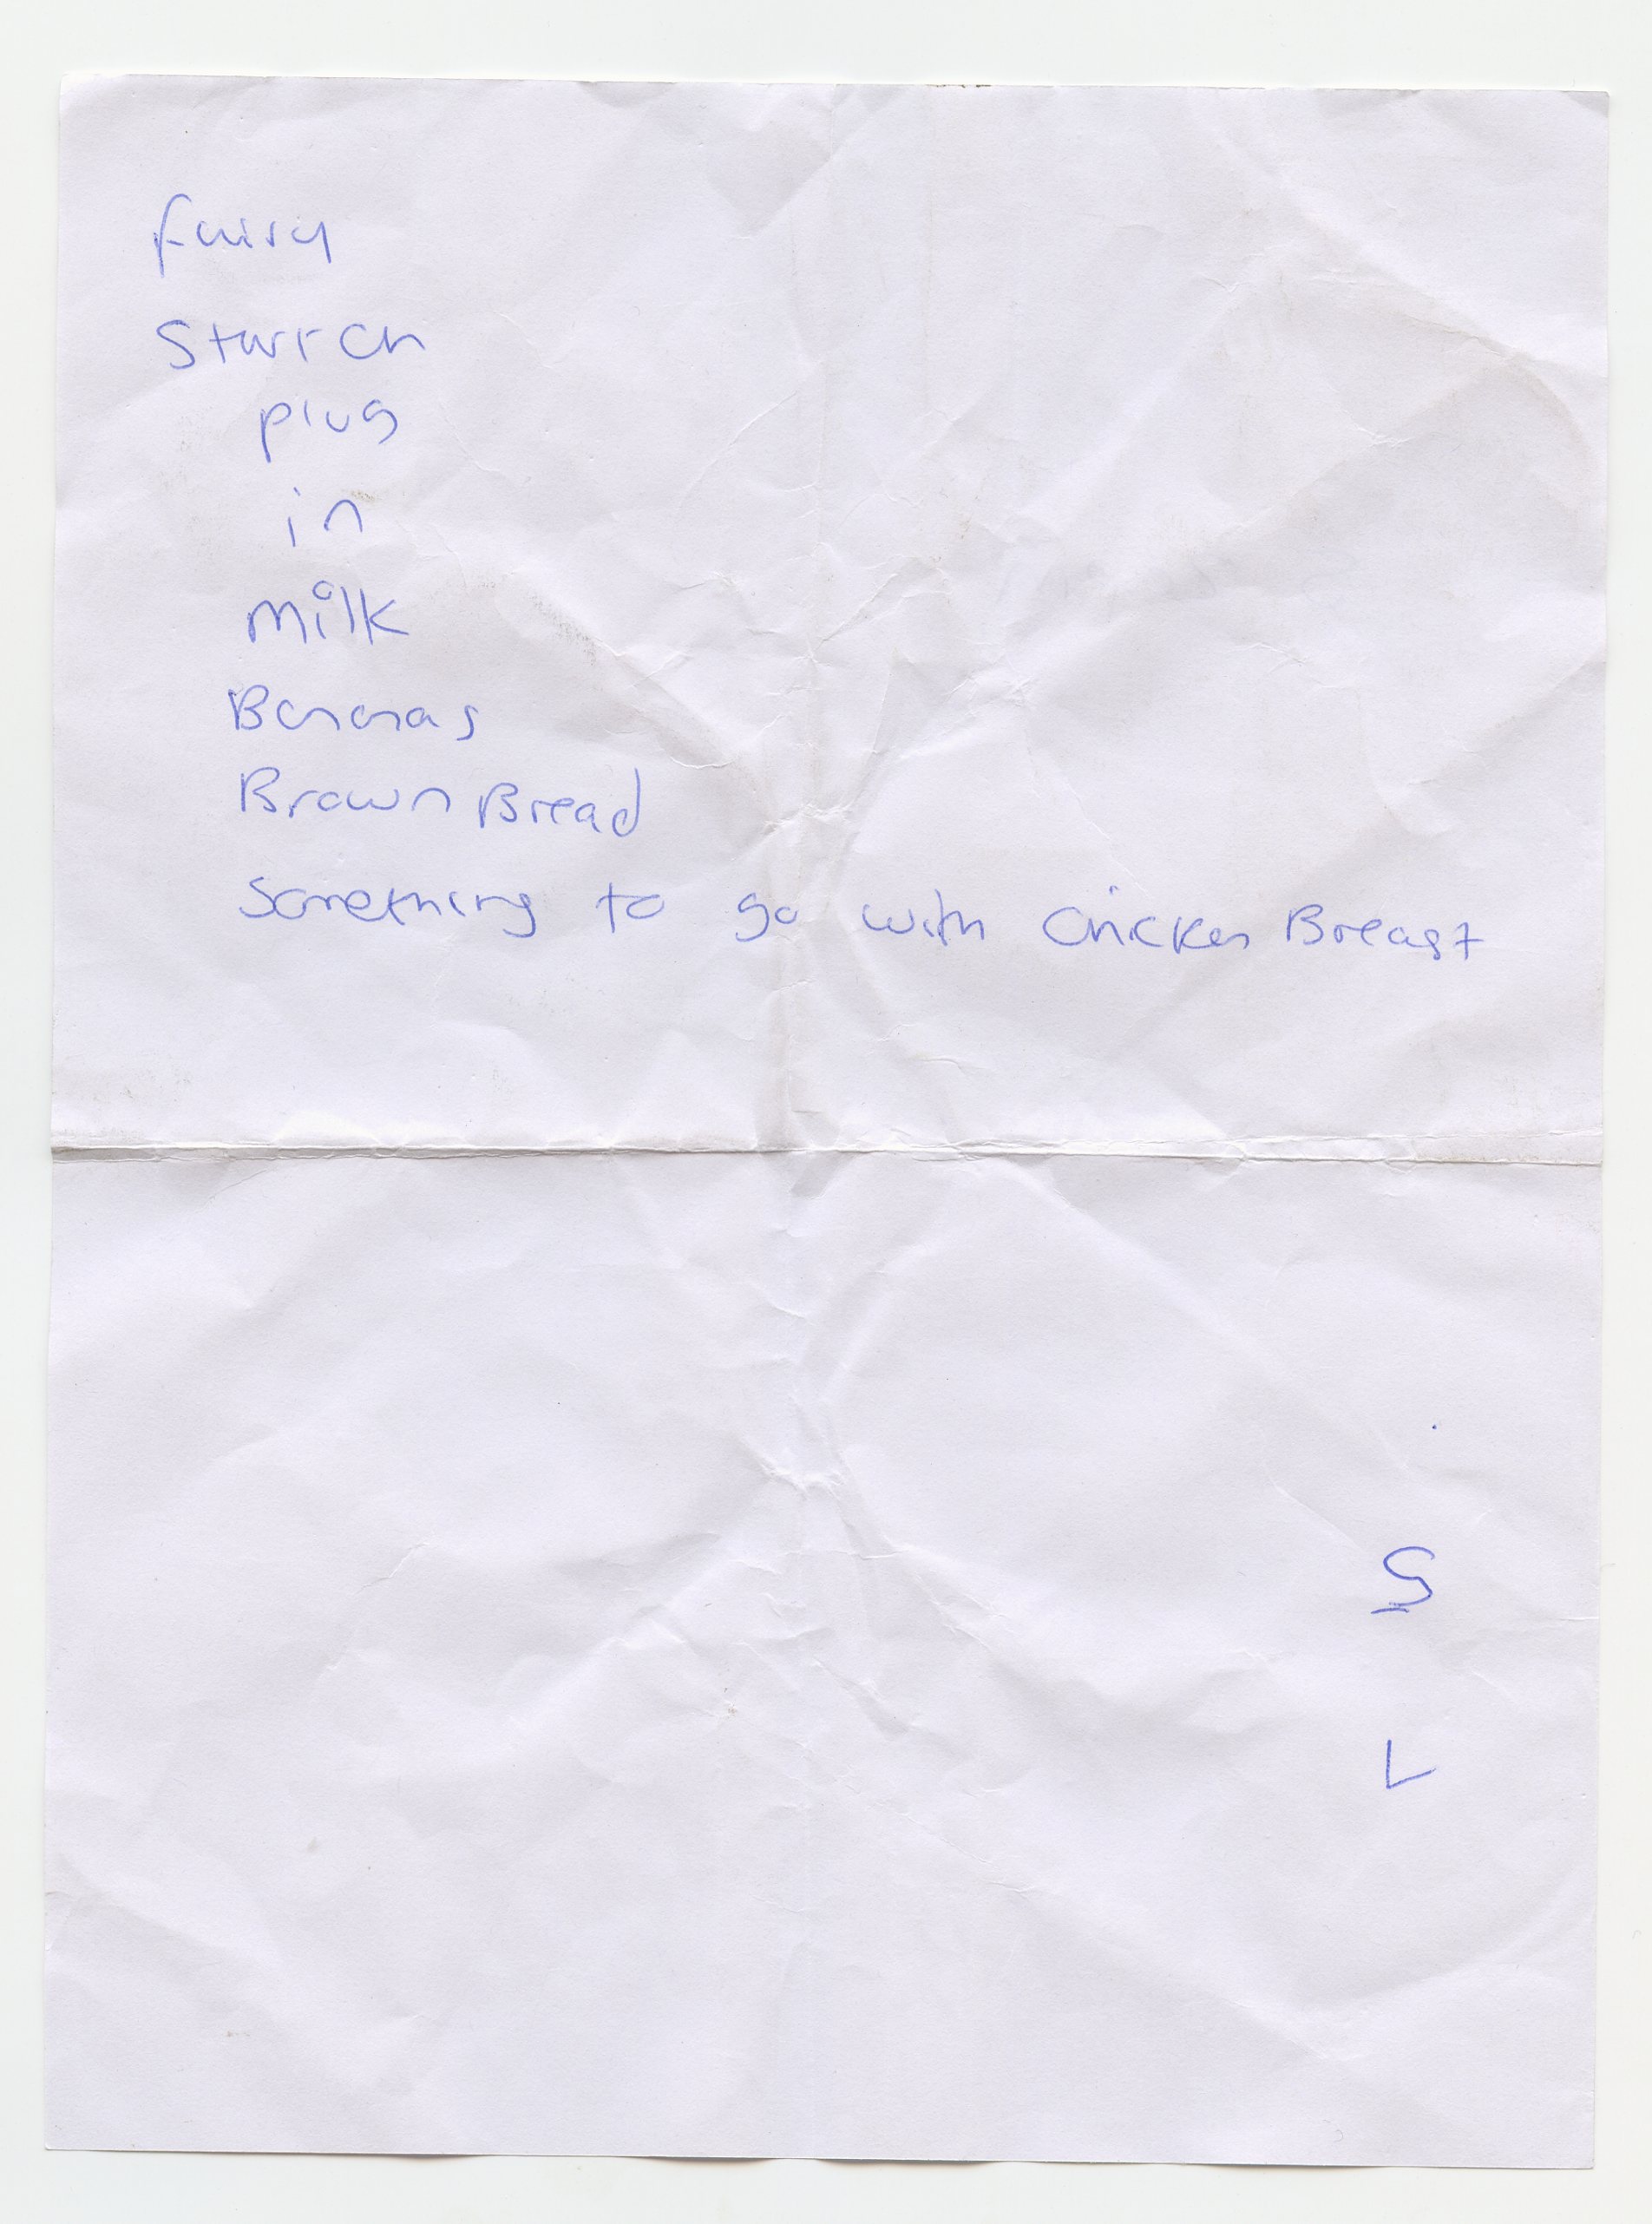 fairy
Starch
plug
in
milk
Bananas
Brown Bread
Something to go with Chicken Breast
S
L